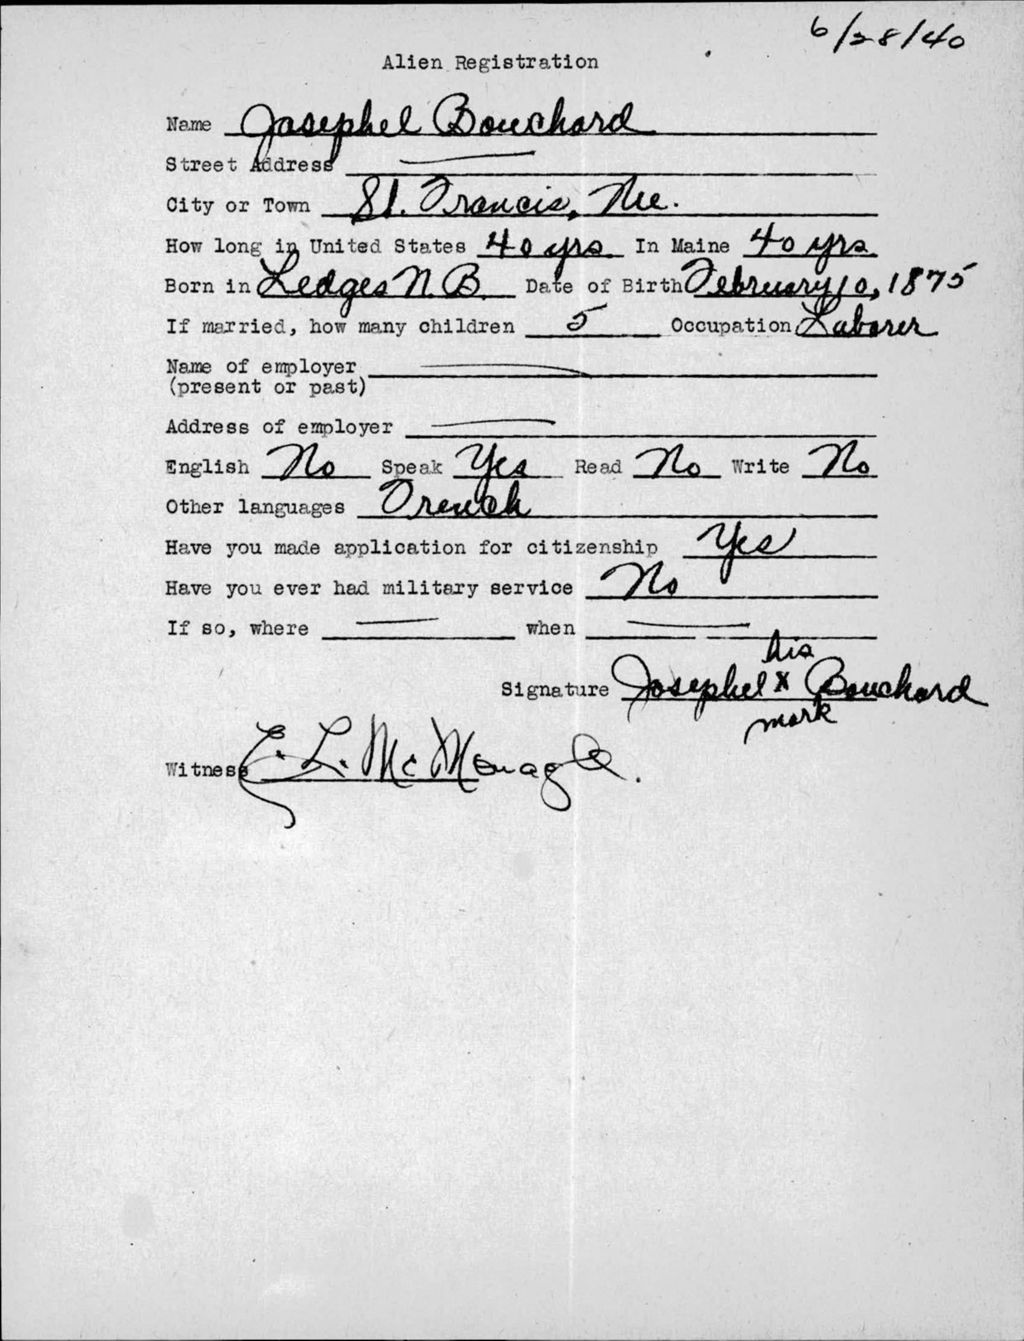 6/28/40
Alien Registration
Name Josephel Bouchard
Street Address
City or Town St. Francis, Me.
How long in United States 40 yrs In Maine 40 yrs
Born in Ledges N.B. Date of Birth February 10, 1875
If married, how many children 5 Occupation Laborer
Name of employer
(present or past)
Address of employer
English No Speak Yes Read No Write No
Other languages French
Have you made application for citizenship Yes
Have you ever had military service No
If so, where when
his
Signature Josephel X Bouchard
mark
Witness E. L. McMonagle.